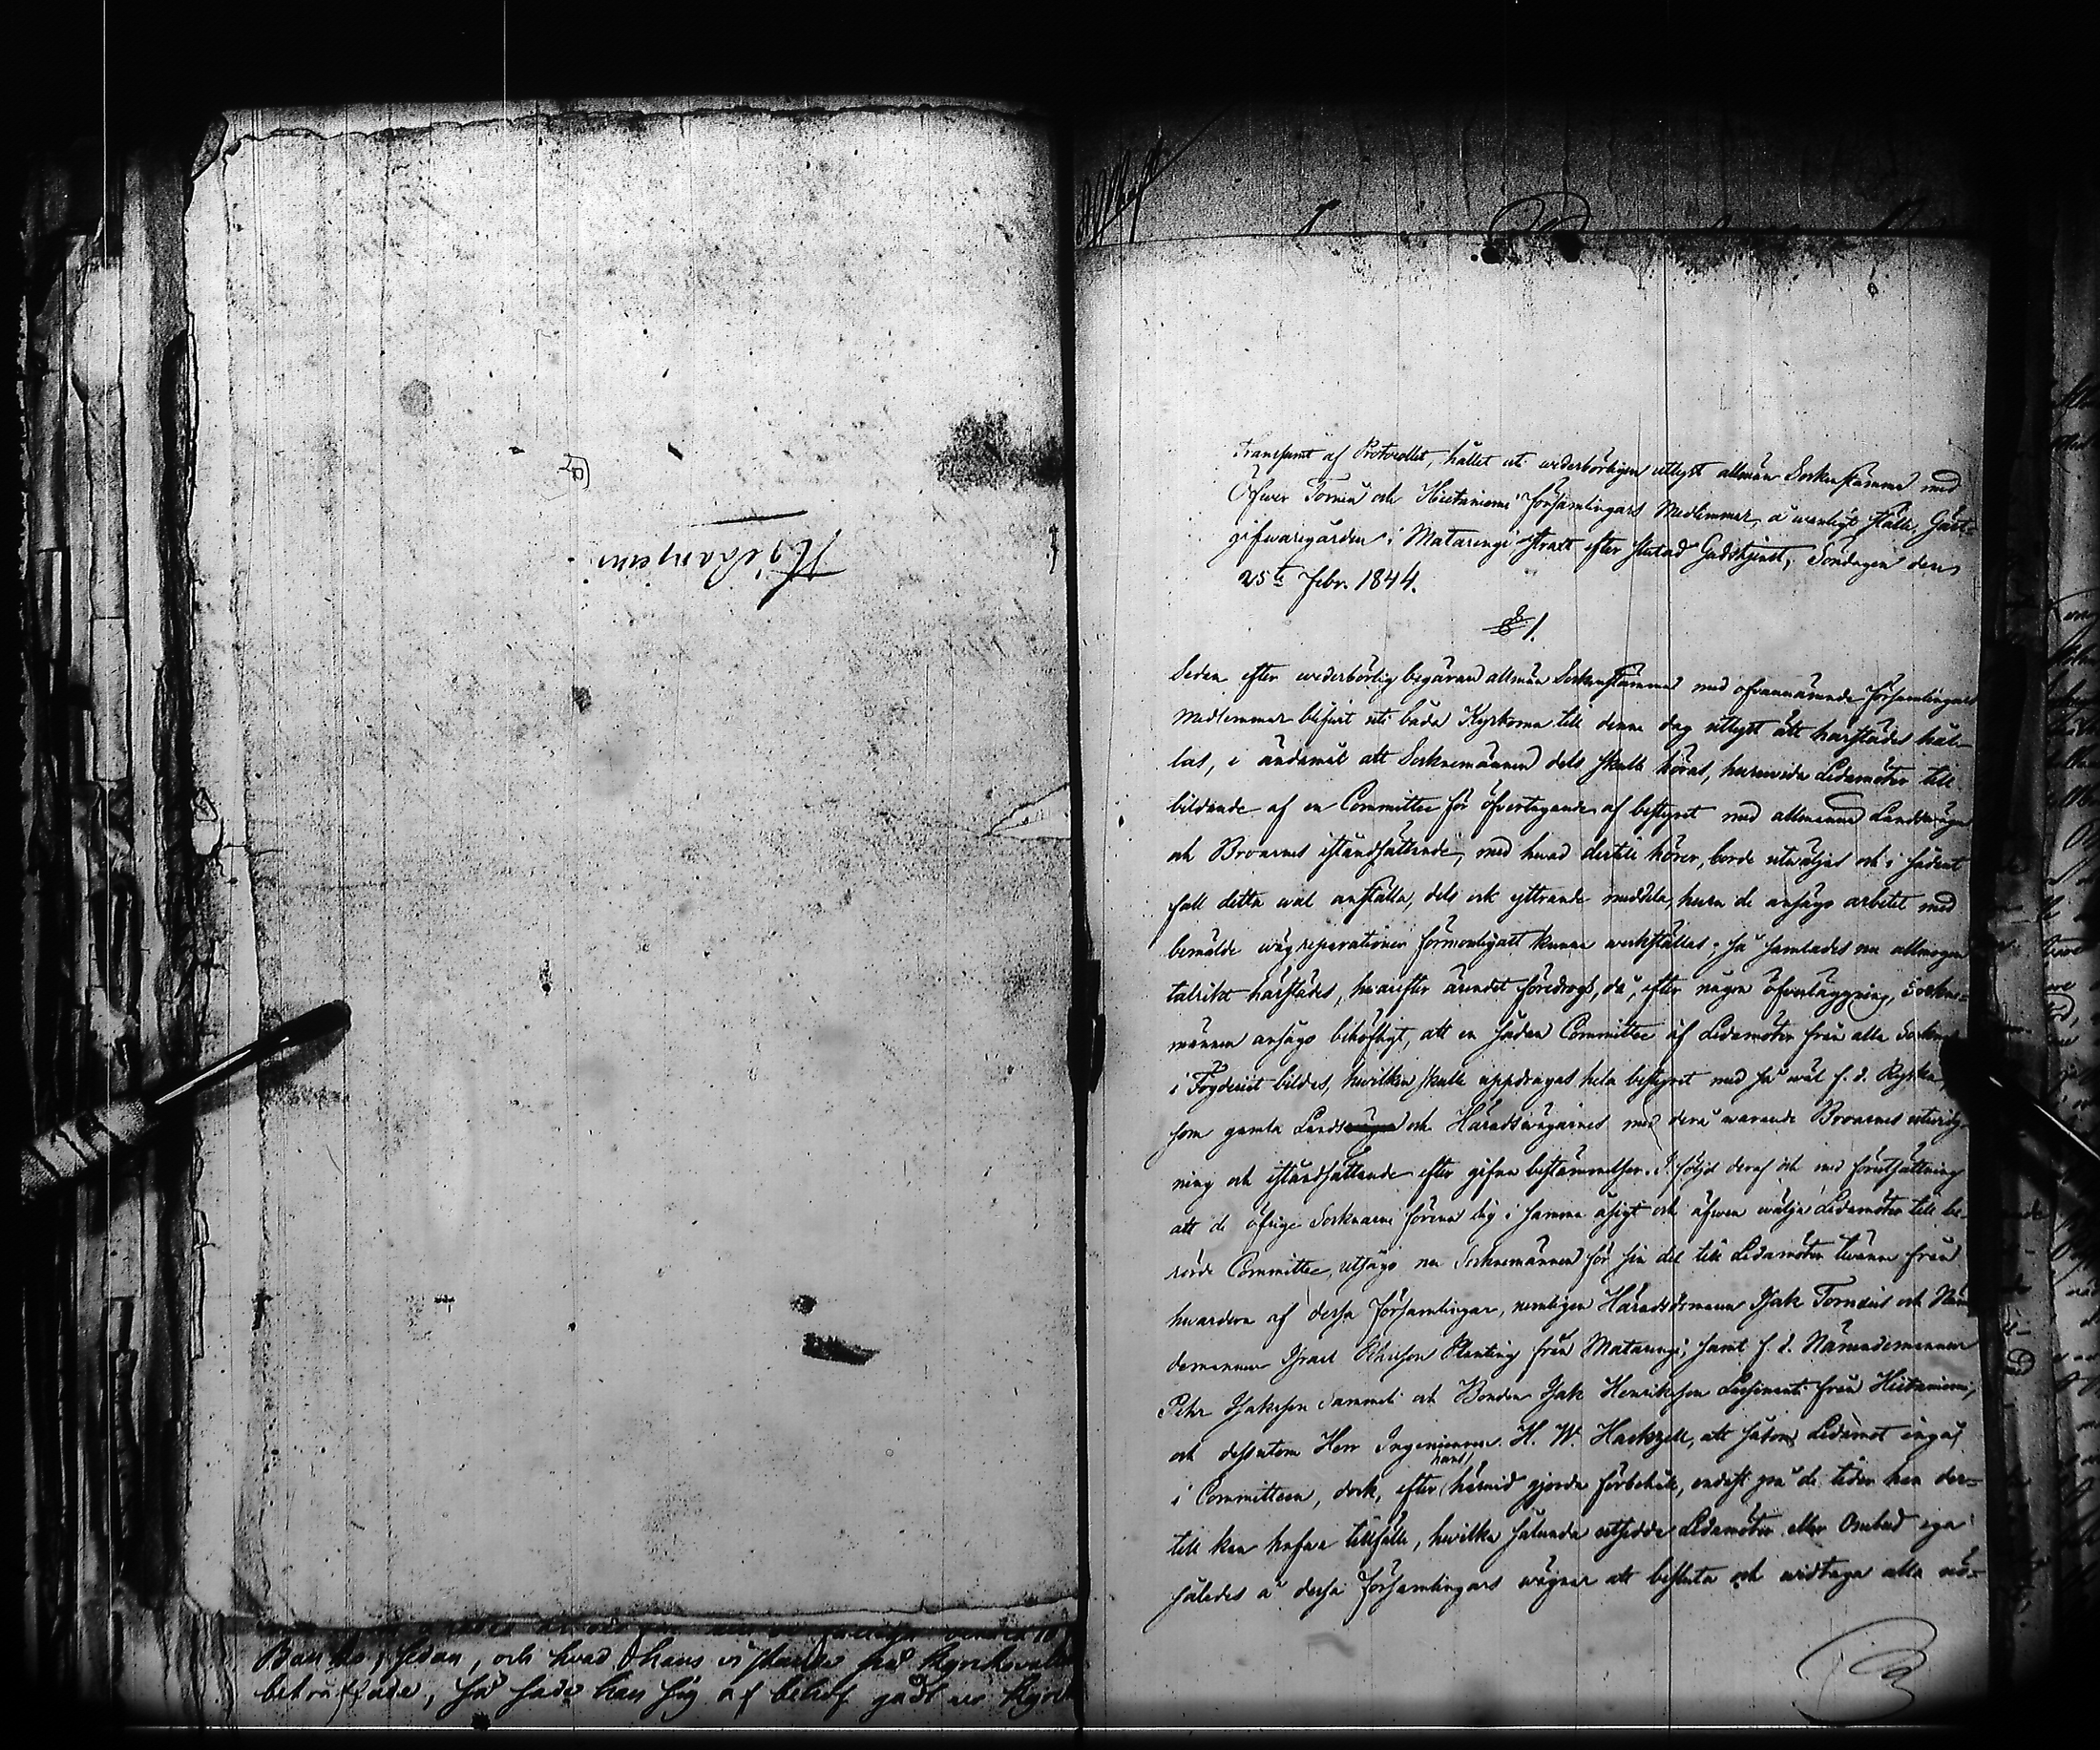 Banko, sedan, och hvad hans vistande på Kyrkovall
beträffade, så hade han sig af behof gådt
Transumt af Protocollet, hållet uti wederbörligen utlyst allmän Sockenstämma med
Öfwer Torneå och Hietaniemi församlingars Medlemmar, å wanligt ställe, Gäst-
gifwaregården i Matarengi strax efter slutad Gudstjenst, Söndagen den
25te Febr. 1844.
§ 1.
Sedan efter wederbörlig begäran allmän Sockenstämma med ofvannämnde församlingars
Medlemmar blifwit uti båda Kyrkorna till denna dag utlyst att härstädes hål-
las, i ändamål att Socknemännen dels skulle höras, huruvida Ledamöter till
bildande af en Committee för öfvertagande af bestyret med allmänna Landsvägar
och Broarnes iståndsättande, med hwad dertill hörer, borde utwäljas och i sådant
fall detta wal anställa, dels ock yttrande meddela, huru de ansågo arbetet med
bemälde wägreparationer förmonligast kunna werkställas; så samlades nu allmogen
talrikt härstädes, hwarefter ärendet föredrogs, då, efter någon öfverläggning, Sockne-
männen ansågo behöfligt, att en sådan Committee af Ledamöter från alla Socknar
i Fögderiet bildes, hwilken skulle uppdragas hela bestyret med så wäl s. k. Ryska,
som gamla Lands och Häradswägarnes med dera warande Broarnes
ning och iståndsättande efter gifna bestämmelser. I följd deraf och med förutsättning
att de öfrige Socknarne förena sig i samma åsigt och äfwen wälja Ledamöter till be-
rörde Committee, utsågo nu Socknemännen för sin del till Ledamöter twänne från
hwardera af dessa församlingar, nemligen Häradsdomaren Isak Tornéus och Näm-
demannen Israel Planting från Matarengi, samt f. d. Nämndemannen
Pehr Isaksson Sammeli och Bonden Isak Henriksson från Hietaniemi,
och dessutom Herr Ingenieuren H. W. Hackzell, att såsom Ledamot ingå
i Committeen, dock, efter hans härwid gjorda förbehåll, endast på de tider han der-
till kan hafwa tillfälle, hwilka sålunda utsedde Ledamöter eller Ombud ega
således å dessa församlingars wägnar att besluta och widtaga alla nö-